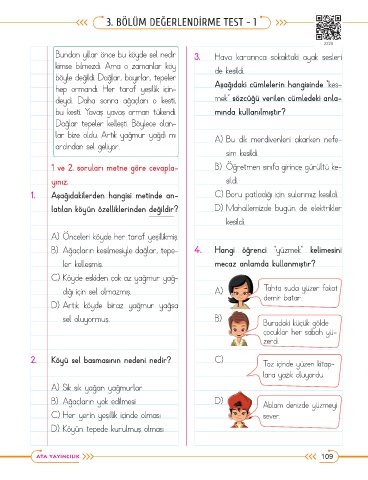 3. BÖLÜM DEĞERLENDİRME TEST - 1
Bundan yıllar önce bu köyde sel nedir
kimse bilmezdi. Ama o zamanlar köy
böyle değildi. Dağlar, bayırlar, tepeler
hep ormandı. Her taraf yeşillik için-
deydi. Daha sonra ağaçları o kesti,
bu kesti. Yavaş yavaş orman tükendi.
Dağlar tepeler kelleşti. Böylece olan-
lar bize oldu. Artık yağmur yağdı mı
ardından sel geliyor.
1 ve 2. soruları metne göre cevapla-
yınız.
1. Aşağıdakilerden hangisi metinde an-
latılan köyün özelliklerinden değildir?
A) Önceleri köyde her taraf yeşillikmiş.
B) Ağaçların kesilmesiyle dağlar, tepe-
ler kelleşmiş.
C) Köyde eskiden çok az yağmur yağ-
dığı için sel olmazmış.
D) Artık köyde biraz yağmur yağsa
sel oluyormuş.
2. Köyü sel basmasının nedeni nedir?
A) Sık sık yağan yağmurlar
B) Ağaçların yok edilmesi
C) Her yerin yeşillik içinde olması
D) Köyün tepede kurulmuş olması
3. Hava kararınca sokaktaki ayak sesleri
de kesildi.
Aşağıdaki cümlelerin hangisinde "kes-
mek" sözcüğü verilen cümledeki anla-
mında kullanılmıştır?
A) Bu dik merdivenleri çıkarken nefe-
sim kesildi.
B) Öğretmen sınıfa girince gürültü ke-
sildi.
C) Boru patladığı için sularımız kesildi.
D) Mahallemizde bugün de elektrikler
kesildi.
4. Hangi öğrenci "yüzmek" kelimesini
mecaz anlamda kullanmıştır?
A) Tahta suda yüzer fakat
demir batar.
B) Buradaki küçük gölde
çocuklar her sabah yü-
zerdi.
C) Toz içinde yüzen kitap-
lara yazık oluyordu.
D) Ablam denizde yüzmeyi
sever.
ATA YAYINCILIK
109